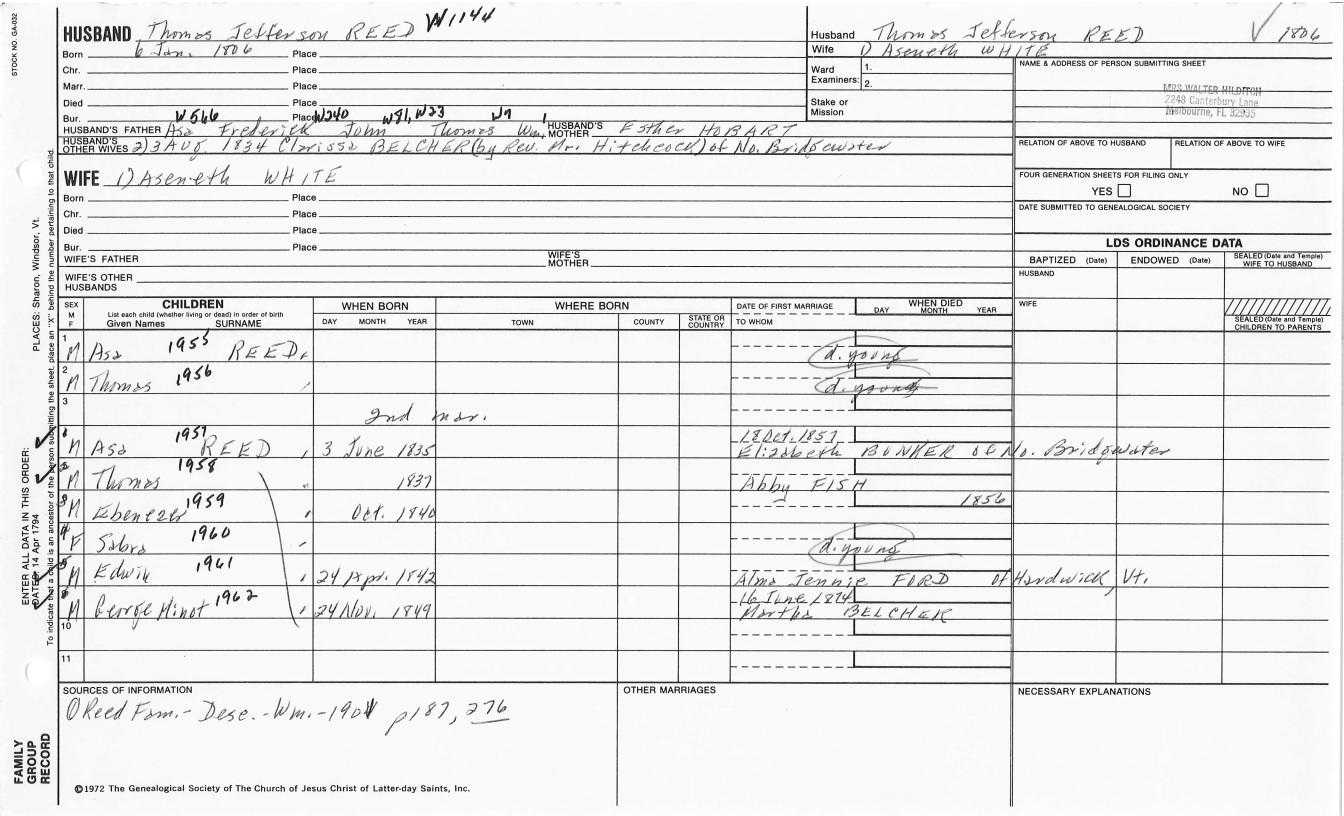 STOCK NO. GA-032
HUSBAND Thomas Jefferson REED W1144
Born 6 Jan. 1806 Place
Chr. Place
Marr. Place
Died Place
Bur. Place
W566 W240 W81, W23 W9 1
HUSBAND'S FATHER Asa Frederick John Thomas Wm. HUSBAND'S MOTHER Esther HOBART
HUSBAND'S OTHER WIVES 2) 3 Aug. 1834 Clarissa BELCHER (by Rev. Mr. Hitchcock) of No. Bridgwater
Husband Thomas Jefferson REED ✓ 1806
Wife 1) Aseneth WHITE
Ward Examiners: 1.
2.
Stake or Mission
NAME & ADDRESS OF PERSON SUBMITTING SHEET
MRS WALTER HILDITCH
2248 Canterbury Lane
Melbourne, FL 32935
RELATION OF ABOVE TO HUSBAND RELATION OF ABOVE TO WIFE
FOUR GENERATION SHEETS FOR FILING ONLY
YES NO
DATE SUBMITTED TO GENEALOGICAL SOCIETY
WIFE 1) Aseneth WHITE
Born Place
Chr. Place
Died Place
Bur. Place
WIFE'S FATHER WIFE'S MOTHER
WIFE'S OTHER HUSBANDS
LDS ORDINANCE DATA
BAPTIZED (Date) ENDOWED (Date) SEALED (Date and Temple) WIFE TO HUSBAND
HUSBAND
WIFE
SEALED (Date and Temple) CHILDREN TO PARENTS
SEX M F
CHILDREN
List each child (whether living or dead) in order of birth
Given Names SURNAME
WHEN BORN
DAY MONTH YEAR
WHERE BORN
TOWN COUNTY STATE OR COUNTRY
DATE OF FIRST MARRIAGE
TO WHOM
WHEN DIED
DAY MONTH YEAR
1 M Asa 1955 REED, d. young
2 M Thomas 1956 d. young
3 2nd mar.
18 Oct. 1857
1 M Asa 1957 REED 3 June 1835 Elizabeth BUNKER of No. Bridgwater
2 M Thomas 1958 1837 Abby FISH
3 M Ebenezer 1959 Oct. 1840 1856
4 F Sabra 1960 d. young
5 M Edwin 1961 24 Apr. 1842 Alma Jennie FORD of Hardwick, Vt.
16 June 1874
6 M George Minot 1962 24 Nov. 1849 Martha BELCHER
10
11
SOURCES OF INFORMATION
Reed Fam.- Desc.- Wm.- 1901 p187, 276
OTHER MARRIAGES
NECESSARY EXPLANATIONS
©1972 The Genealogical Society of The Church of Jesus Christ of Latter-day Saints, Inc.
FAMILY GROUP RECORD
ENTER ALL DATA IN THIS ORDER:
DATES: 14 Apr 1794
PLACES: Sharon, Windsor, Vt.
To indicate that a child is an ancestor of the person submitting the sheet, place an "X" behind the number pertaining to that child.